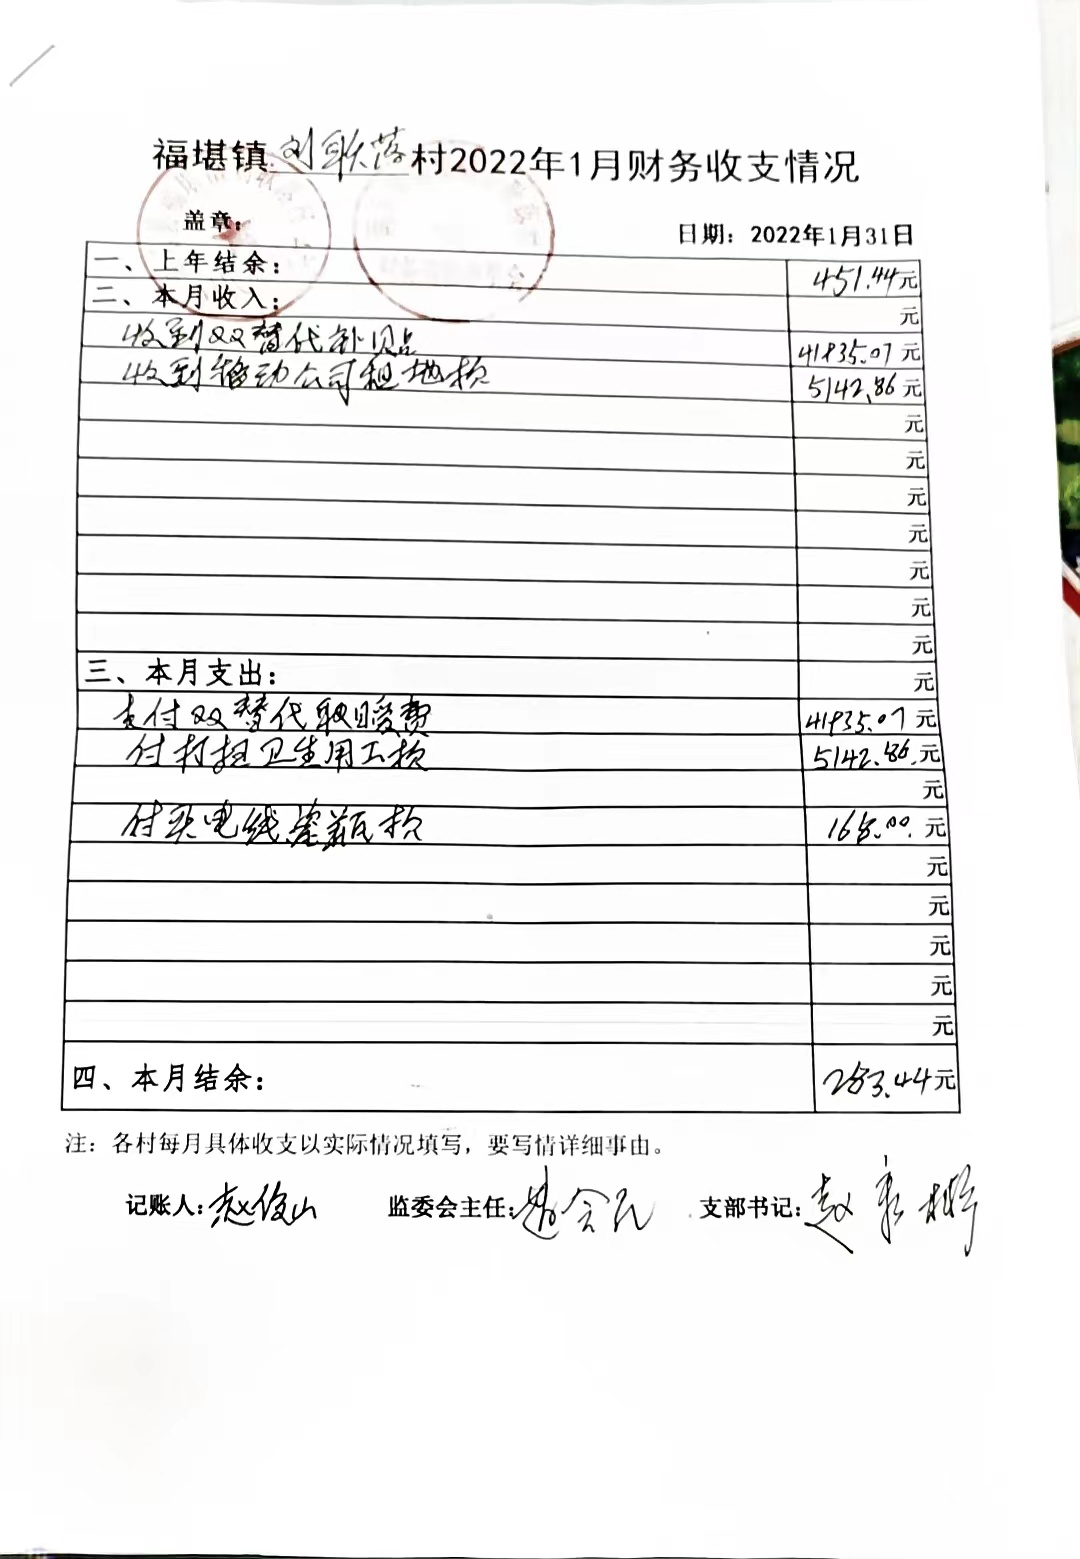 福堪镇刘联落村2022年1月财务收支情况
盖章：
日期：2022年1月31日
一、上年结余： 451.44元
二、本月收入： 元
收到双替代补贴 41835.07元
收到移动公司租地款 5142.86元
元
元
元
元
元
元
元
三、本月支出： 元
支付双替代取暖费 41835.07元
付打扫卫生用工款 5142.86元
元
付买电线、灯款 168.00元
元
元
元
元
元
四、本月结余： 283.44元
注：各村每月具体收支以实际情况填写，要写情详细事由。
记账人：赵俊山 监委会主任：赵会民 支部书记：赵